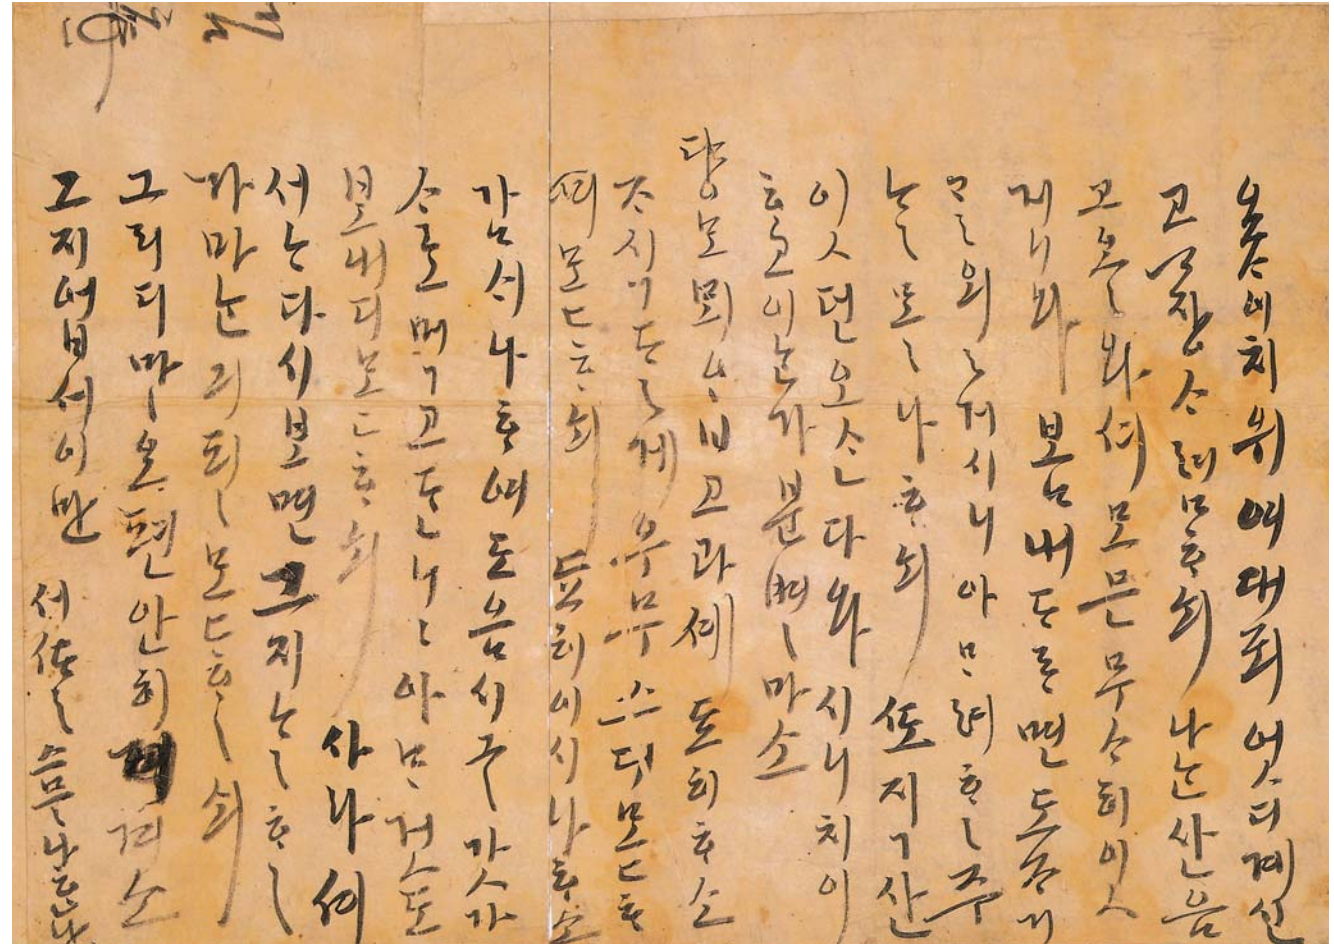 요ᄉᆞ이 치위예 대되 엇디 계신
고 ᄀᆞ장 ᄉᆞ렴ᄒᆞ뇌 나ᄂᆞᆫ 산음
고올 와셔 모믄 무ᄉᆞ히 잇
거니와 봄 내ᄃᆞᄅᆞ면 도ᄌᆞ기
ᄀᆞᆯ욀 거시니 아ᄆᆞ려 ᄒᆞᆯ 주
ᄂᆞᆯ 모ᄅᆞᆯ나 ᄒᆞ뇌 ᄯᅩ 직산
잇던 오ᄉᆞᆫ 다 와시니 치이
ᄒᆞ고 이ᄂᆞᆫ가 분별 마소
댱모 뫼ᄋᆞᆸ고 과셰 됴히 ᄒᆞ소
ᄌᆞ식ᄃᆞᆯ게 우무 스디 몯ᄒᆞ
여 몯ᄒᆞ뇌 됴히 이시나 ᄒᆞ소
감시나 ᄒᆞ여도 음시글 갓가
ᄉᆞ로 먹고 ᄃᆞᆫ니니 아ᄆᆞ것도
보내디 몯ᄒᆞ뇌 사나셔
서ᄂᆞᆯ 다시 보면 그지ᄂᆞᆯ ᄒᆞᆯ
가마ᄂᆞᆫ 긔필 몯ᄒᆞᆯ쇠
그리디 마오 편안히 겨소
그지업서 이만
섯ᄃᆞᆯ 스므나ᄒᆞᆫ날